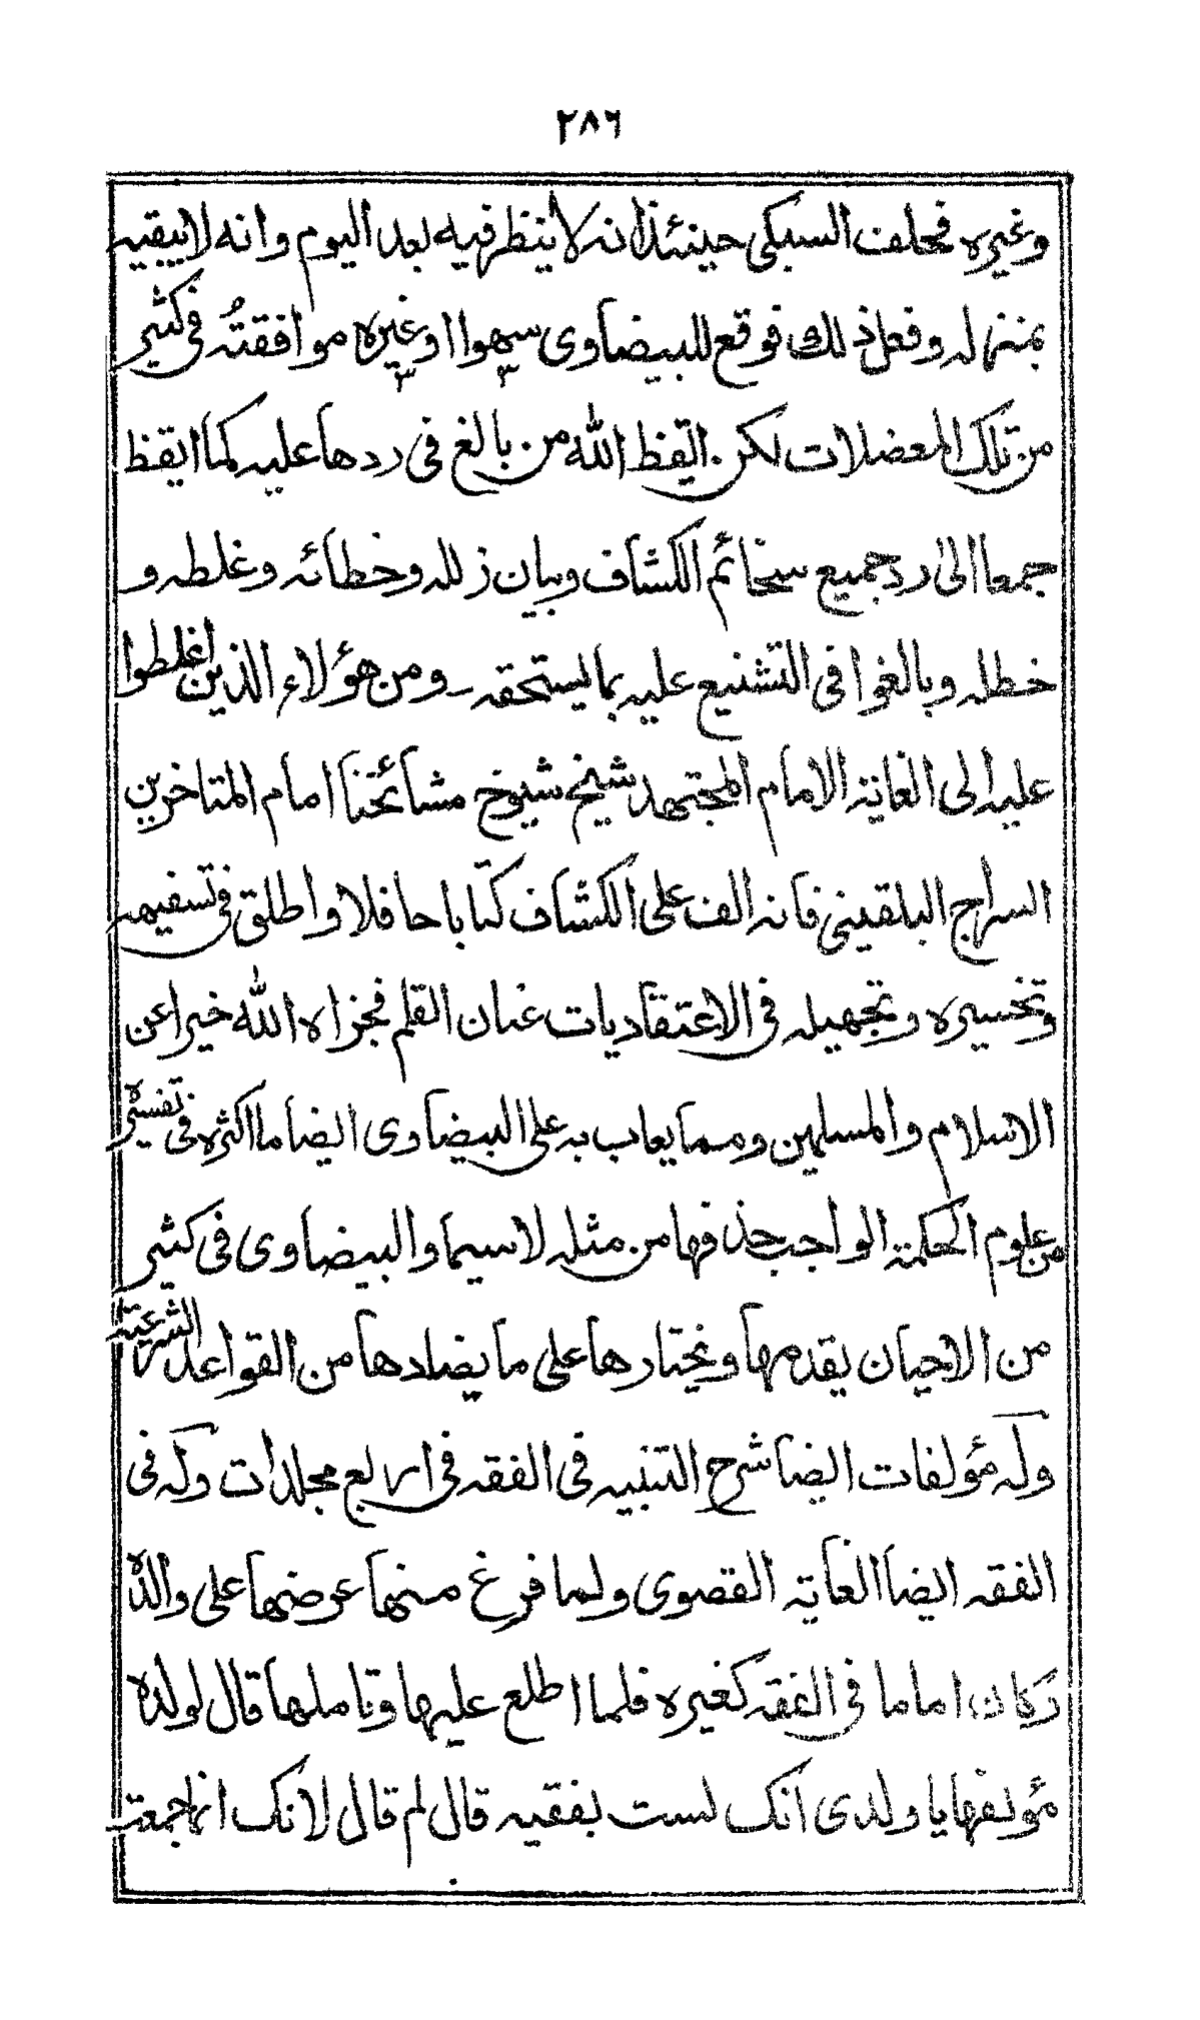 ٢٨٦
وغيره فحلف السبكى حينئذ انه لا ينظر فيه بعد اليوم وانه لا يبقيه
بمنزله وفعل ذلك فوقع للبيضاوى سهوا او غيره موافقتُه فى كثير
من تلك المعضلات لكن ايقظ الله من بالغ فى ردها عليه كما ايقظ
جمعا الى رد جميع سخائم الكشاف وبيان زلله وخطائه وغلطه و
خطله وبالغوا فى التشنيع عليه بما يستحقه ـ ومن هؤلاء الذين اغلظوا
عليه الى الغاية الامام المجتهد شيخ شيوخ مشائخنا امام المتاخرين
السراج البلقينى فانه الف على الكشاف كتابا حافلا واطلق فى تسفيهه
وتخسيره وتجهيله فى الاعتقاديات عنان القلم فجزاه الله خيرا عن
الاسلام والمسلمين ومما يعاب به على البيضاوى ايضا ما اكثره فى تفسيره
من علوم الحكمة الواجب حذفها من مثله لاسيما والبيضاوى فى كثير
من الاحيان يقدمها ويختارها على ما يضادها من القواعد الشرعية
وله مؤلفات ايضا شرح التنبيه فى الفقه فى اربع مجلدات وله فى
الفقه ايضا الغاية القصوى ولما فرغ منها عرضها على والده
وكان اماما فى الفقه كغيره فلما اطلع عليها وتاملها قال لولده
مؤلفها يا ولدى انك لست بفقيه قال لم قال لانك انما جمعت